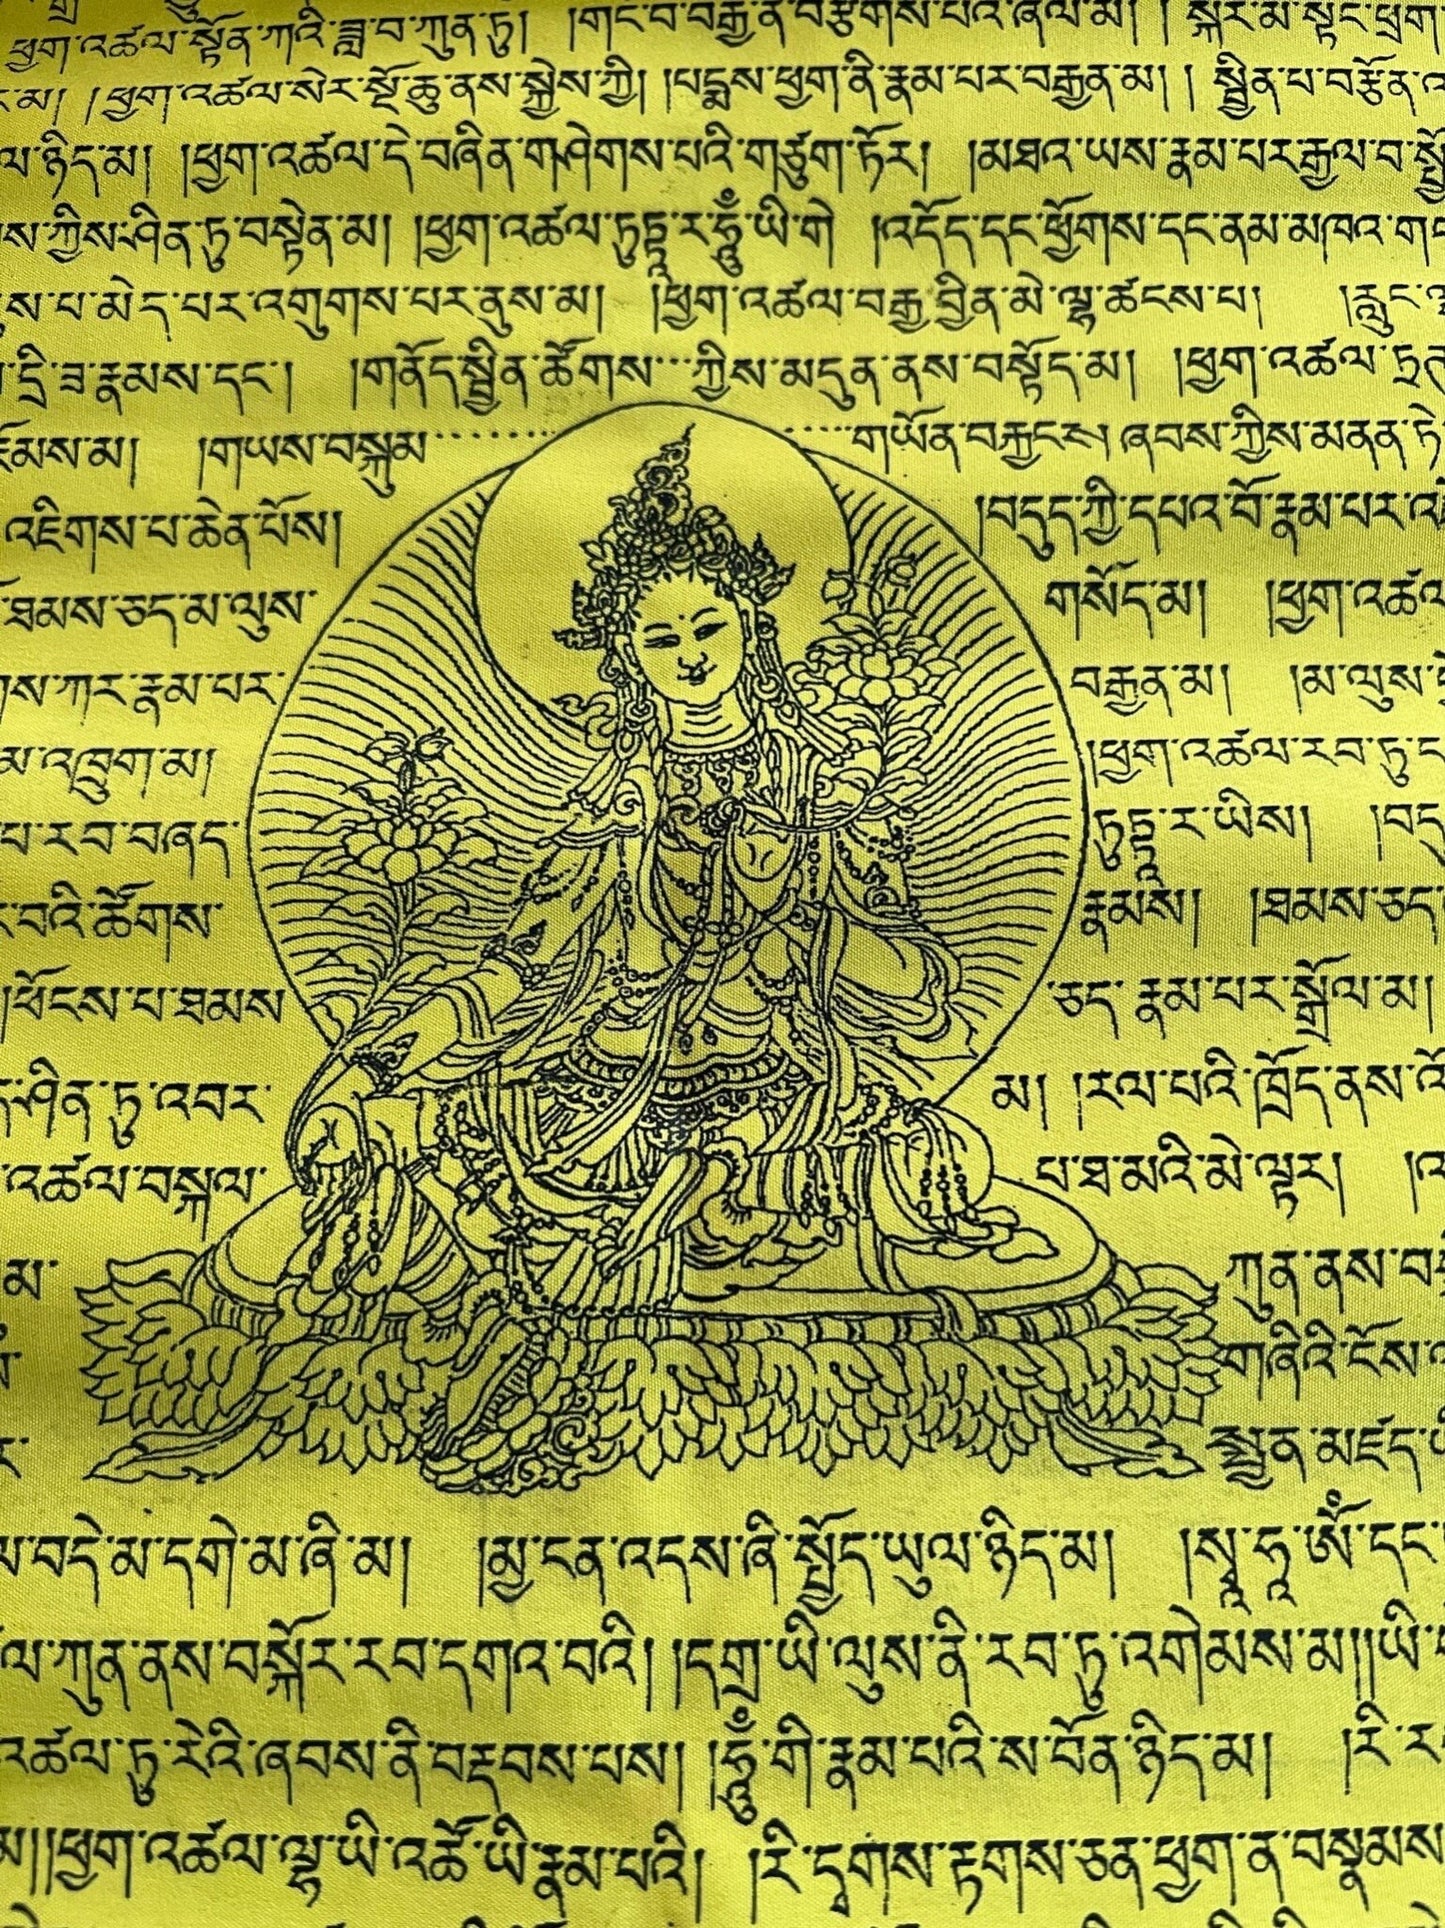 ཕྱག་འཚལ་སྟོན་ཀའི་ཟླ་བ་ཀུན་ཏུ། །གང་བ་བརྒྱ་ནི་བརྩེགས་པའི་ཞལ་མ། །སྐར་མ་སྟོང་ཕྲག
མ། །ཕྱག་འཚལ་སེར་སྔོ་ཆུ་ནས་སྐྱེས་ཀྱི། །པདྨས་ཕྱག་ནི་རྣམ་པར་བརྒྱན་མ། །སྦྱིན་པ་བརྩོན
ལ་ཉིད་མ། །ཕྱག་འཚལ་དེ་བཞིན་གཤེགས་པའི་གཙུག་ཏོར། །མཐའ་ཡས་རྣམ་པར་རྒྱལ་བ་སྤྱོ
ས་ཀྱིས་ཤིན་ཏུ་བསྟེན་མ། །ཕྱག་འཚལ་ཏུཏྟཱ་ར་ཧཱུྃ་ཡི་གེ །འདོད་དང་ཕྱོགས་དང་ནམ་མཁའ་གང
ས་པ་མེད་པར་འགུགས་པར་ནུས་མ། །ཕྱག་འཚལ་བརྒྱ་བྱིན་མེ་ལྷ་ཚངས་པ། །རླུང་
དྲི་ཟ་རྣམས་དང་། །གནོད་སྦྱིན་ཚོགས་ཀྱིས་མདུན་ནས་བསྟོད་མ། །ཕྱག་འཚལ་ཏྲཊ
འཇོམས་མ། །གཡས་བསྐུམ གཡོན་བརྐྱངས། ཞབས་ཀྱིས་མནན་ཏེ
འཇིགས་པ་ཆེན་པོས། །བདུད་ཀྱི་དཔའ་བོ་རྣམ་པར་འ
ཐམས་ཅད་མ་ལུས་ གསོད་མ། །ཕྱག་འཚལ
ས་ཀར་རྣམ་པར་ བརྒྱན་མ། །མ་ལུས་
མ་འཁྲུག་མ། །ཕྱག་འཚལ་རབ་ཏུ་ད
པ་རབ་བཞད་ ཏུཏྟཱ་ར་ཡིས། །བདུ
བའི་ཚོགས་ རྣམས། །ཐམས་ཅད
།ཕོངས་པ་ཐམས ་ཅད་རྣམ་པར་སྒྲོལ་མ།
ཤིན་ཏུ་འབར་ མ། །རལ་པའི་ཁྲོད་ནས་འོ
འཚལ་བསྐལ་ པ་ཐ་མའི་མེ་ལྟར། །འ
མ་ ཀུན་ནས་བ
གཞིའི་ངོས་ལ
སྤྱན་མཛད་
བདེ་མ་དགེ་མ་ཞི་མ། །མྱ་ངན་འདས་ཞི་སྤྱོད་ཡུལ་ཉིད་མ། །སྭཱ་ཧཱ་ཨོཾ་དང་
ལ་ཀུན་ནས་བསྐོར་རབ་དགའ་བའི། །དགྲ་ཡི་ལུས་ནི་རབ་ཏུ་འགེམས་མ།།ཡི་
འཚལ་ཏུ་རེའི་ཞབས་ནི་བརྡབས་པས། །ཧཱུྃ་གི་རྣམ་པའི་ས་བོན་ཉིད་མ། །རི་ར
མ།།ཕྱག་འཚལ་ལྷ་ཡི་འཚོ་ཡི་རྣམ་པའི། །རི་དྭགས་རྟགས་ཅན་ཕྱག་ན་བསྣམས